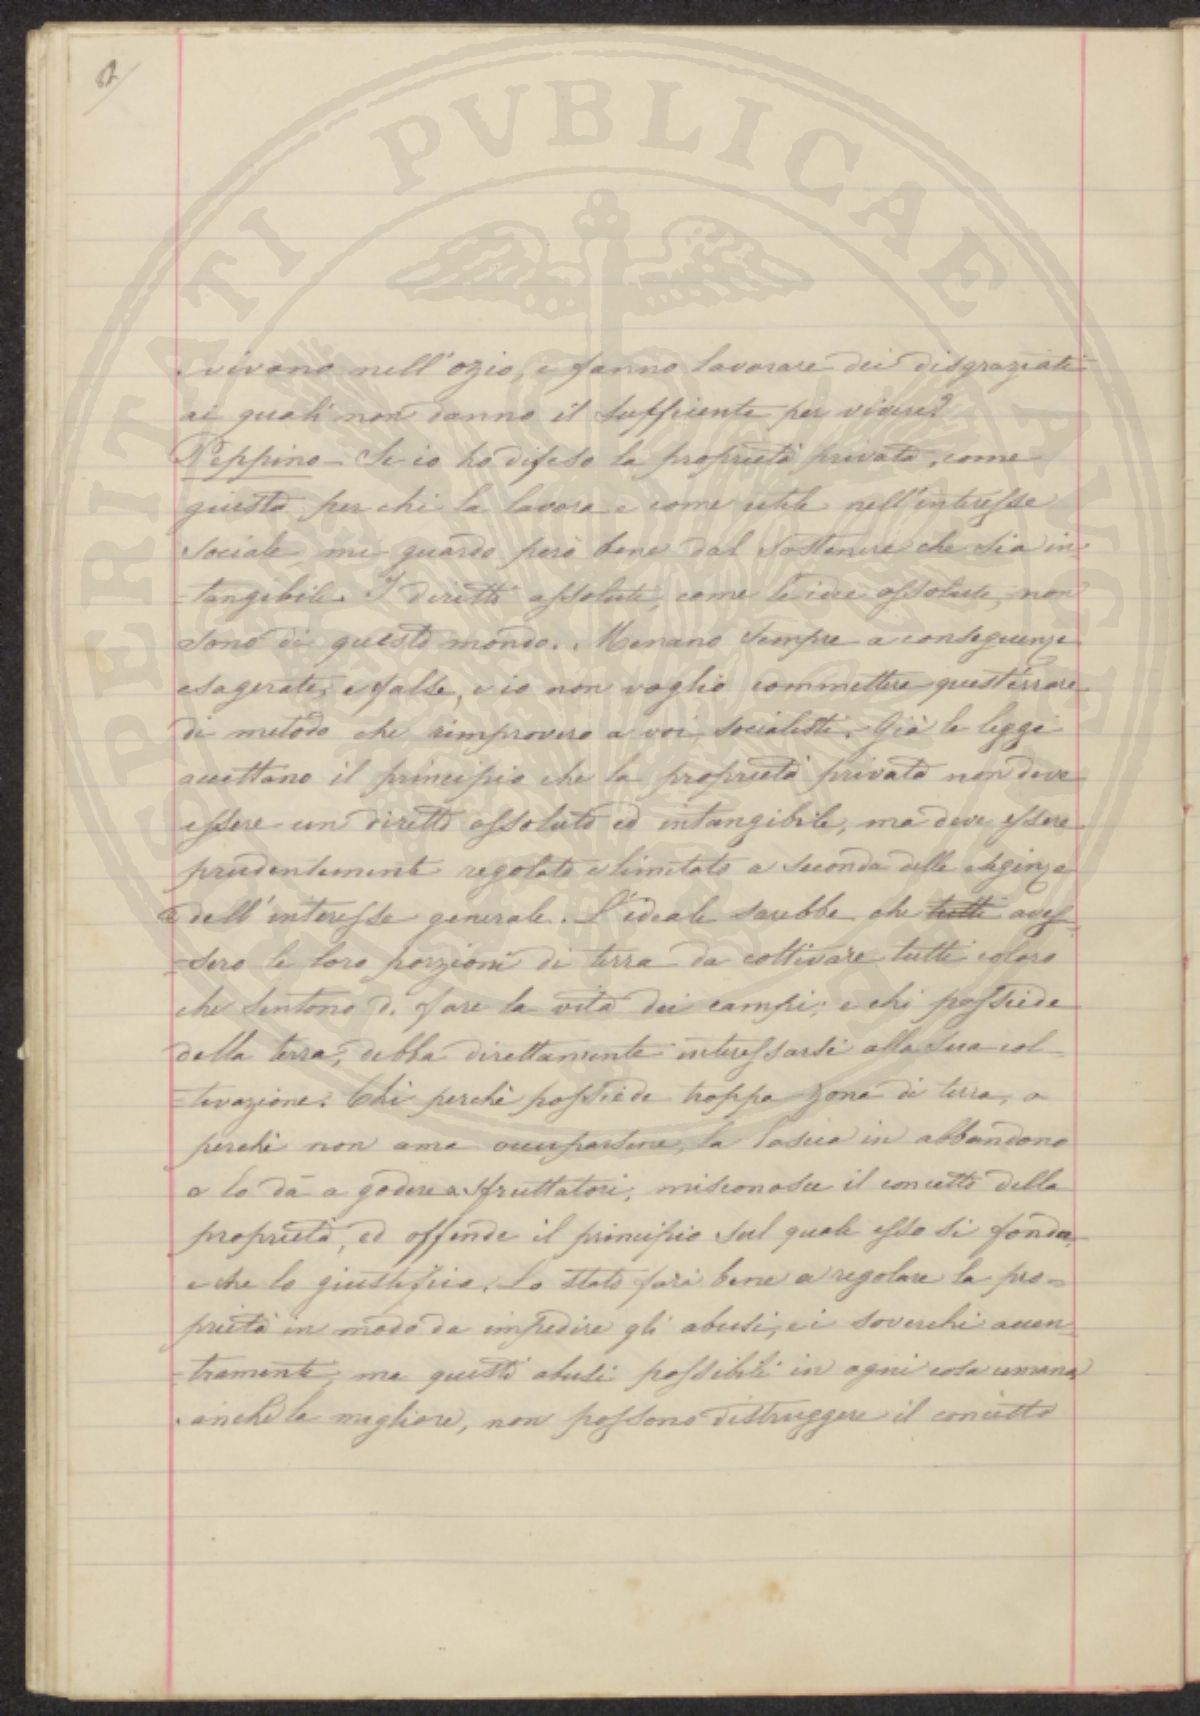 vivono nell'ozio, e fanno lavorare dei disgraziati
ai quali non danno il sufficiente per vivere?
Peppino - Se io ho difeso la proprietà privata, come
giusta per chi la lavora e come utile nell'interesse
sociale, mi guardo però bene dal sostenere che sia in-
-tangibile. I diritti assoluti, come le idee assolute, non
sono di questo mondo. Menano sempre a conseguenze
esagerate, e false, e io non voglio commettere quest'errore
di metodo che rimprovero a voi, socialisti. Già le leggi
accettano il principio che la proprietà privata non deve
essere un diritto assoluto ed intangibile, ma deve essere
prudentemente regolato e limitato a seconda delle esigenze
dell'interesse generale. L'ideale sarebbe che tutti aves-
-sero le loro porzioni di terra da coltivare tutti coloro
che sentono di fare la vita dei campi; e chi possiede
della terra, debba direttamente interessarsi alla sua col-
-tivazione. Chi perchè possiede troppa zona di terra, o
perchè non ama occuparsene, la lascia in abbandono
o la dà a godere a sfruttatori, misconosce il concetto della
proprietà, ed offende il principio sul quale esso si fonda,
e che lo giustifica. Lo stato farà bene a regolare la pro-
prietà in modo da impedire gli abusi, e i soverchi accen-
-tramenti, ma questi abusi possibili in ogni cosa umana
anche la migliore, non possono distruggere il concetto
PERITATI PVBLICAE